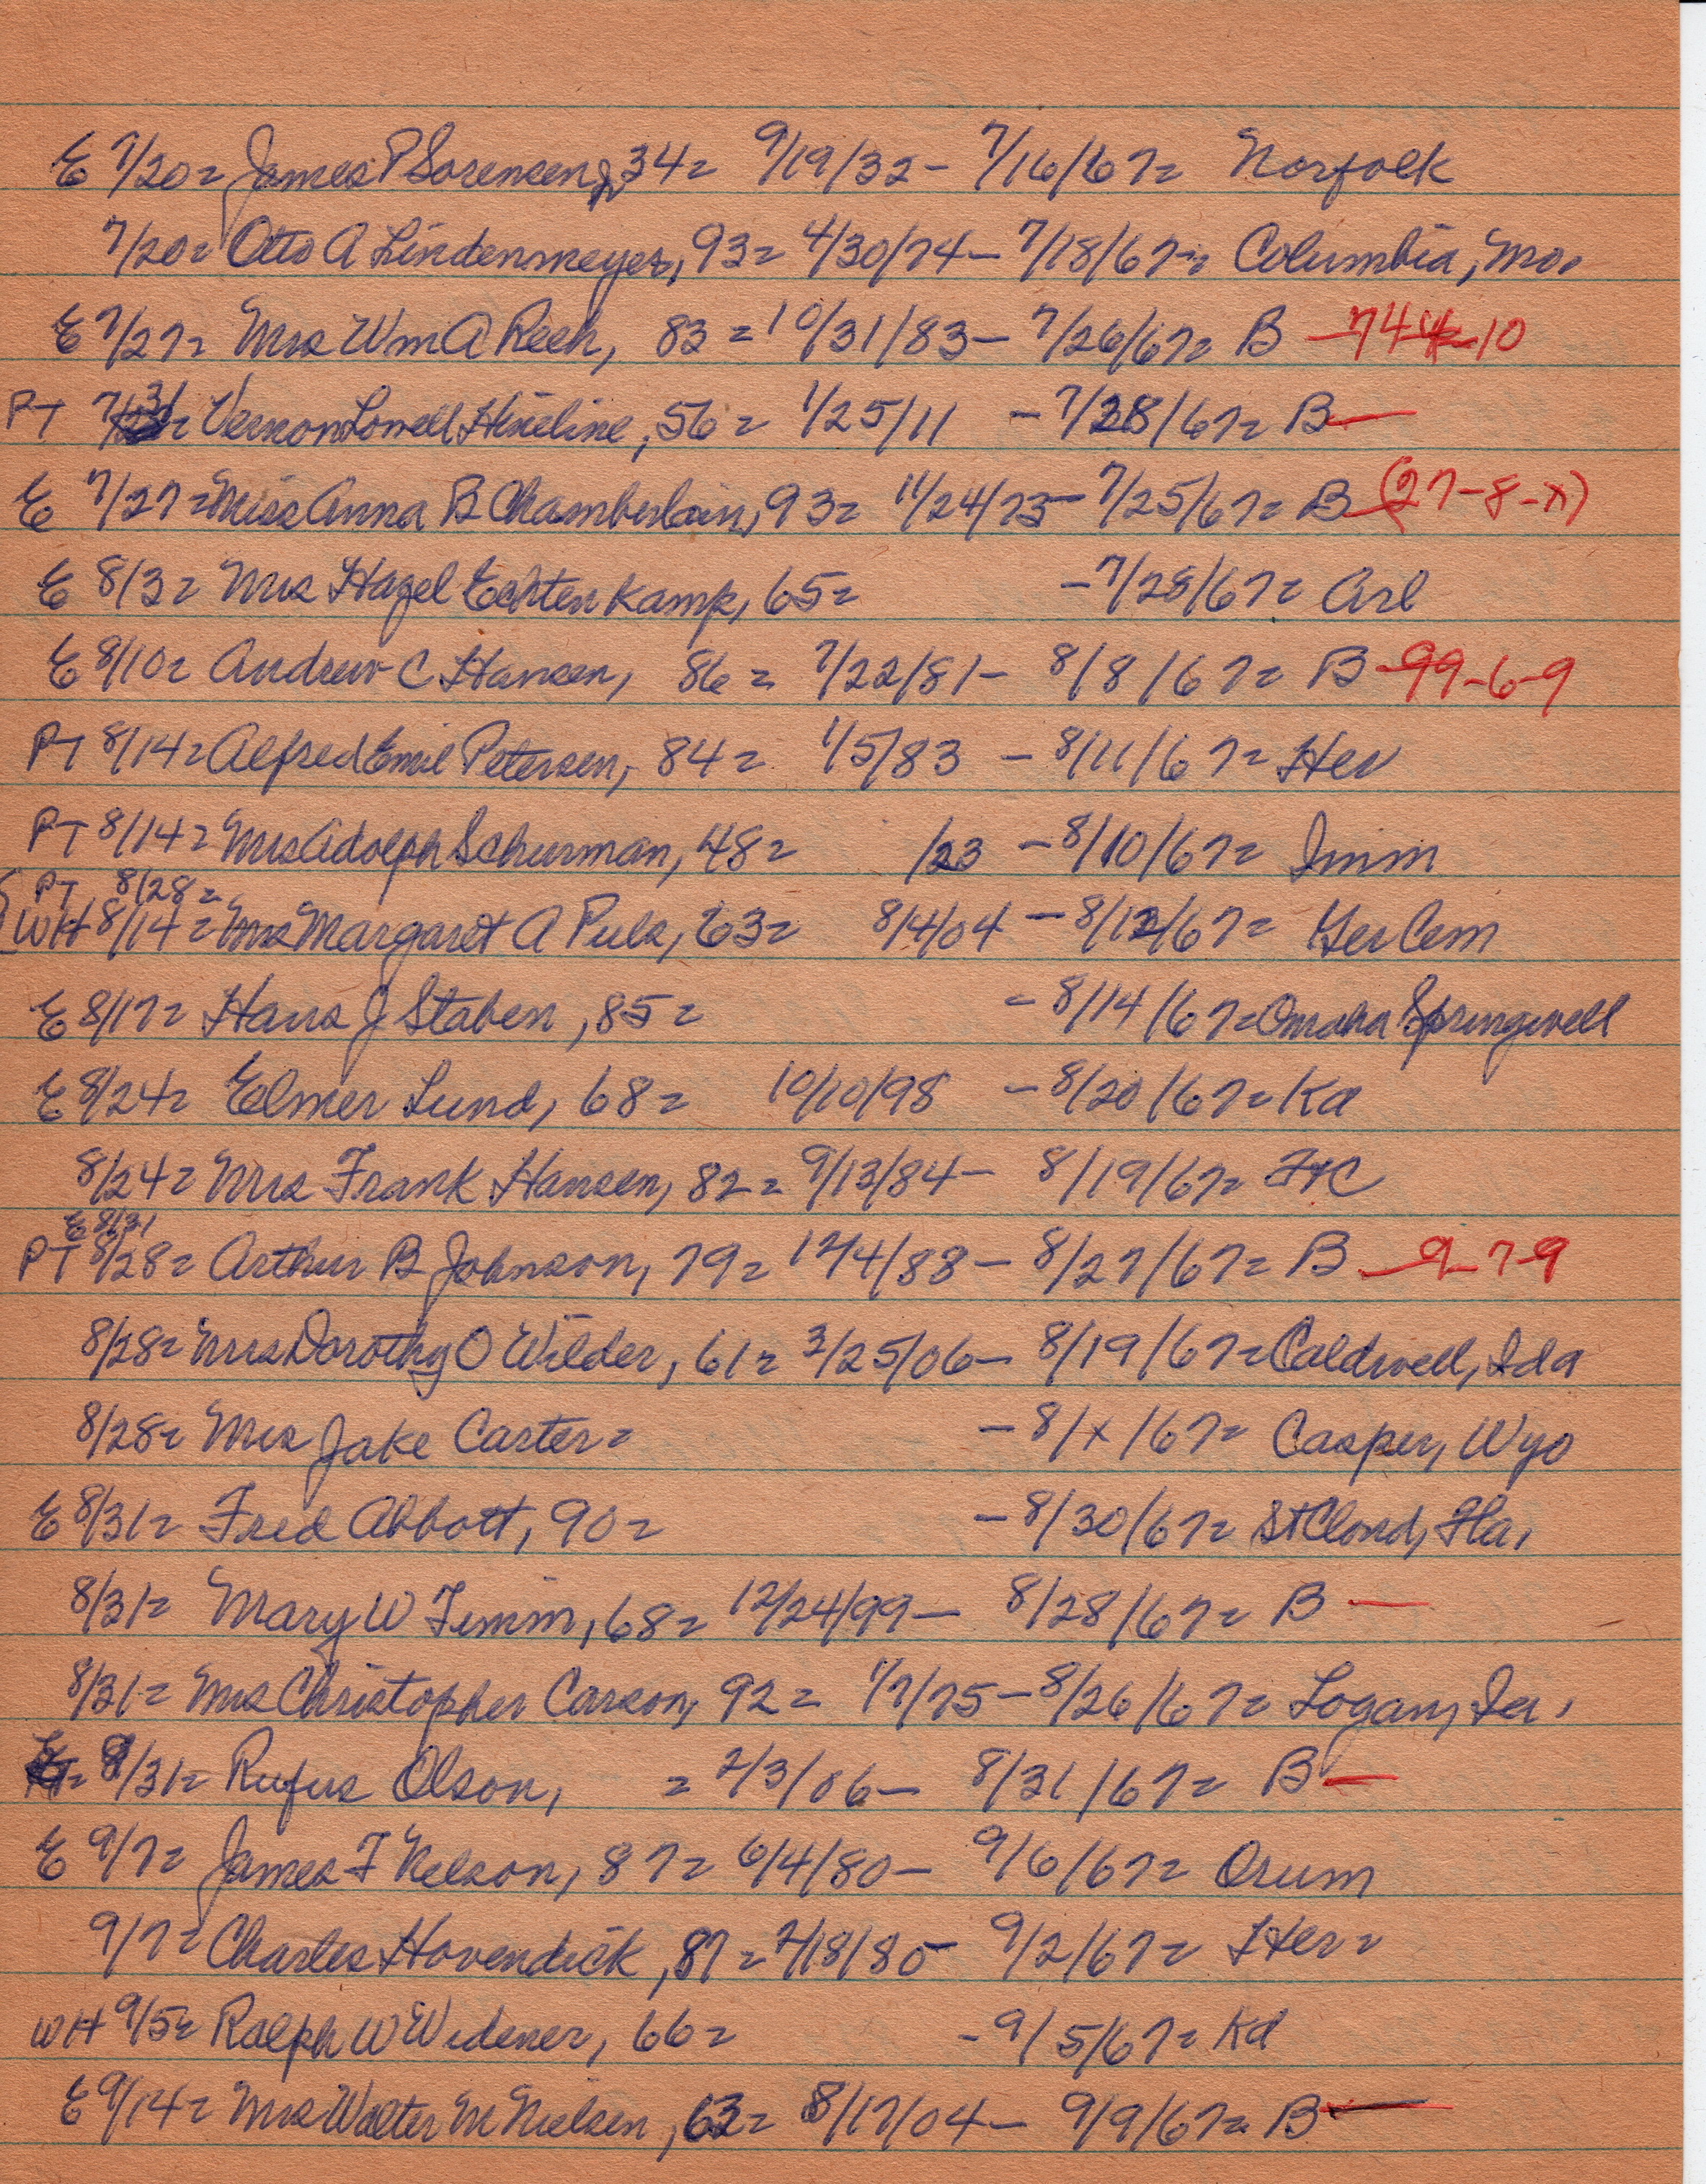 E 7/20= James P Sorensen, 34= 9/19/32 - 7/16/67= Norfolk
7/20= Otto A Lindenmeyer, 93= 4/30/74 - 7/18/67= Columbia, Mo.
E 7/27= Mrs Wm A Reeh, 83 = 10/31/83 - 7/26/67= B - 74-4-10
PT 7/31= Vernon Lowell Hineline, 56= 1/25/11 - 7/28/67= B -
E 7/27= Miss Anna B Chamberlain, 93= 11/24/73 - 7/25/67= B (27-8-X)
E 8/3= Mrs Hazel Echtenkamp, 65= - 7/28/67= Arl
E 8/10= Andrew C Hansen, 86= 7/22/81 - 8/8/67= B - 99-6-9
PT 8/14= Alfred Emil Petersen, 84= 1/5/83 - 8/11/67= Her
PT 8/14= Mrs Adolph Schurman, 48= /23 - 8/10/67= Imm
PT 8/28=
WH 8/14= Mrs Margaret A Puls, 63= 8/4/04 - 8/12/67= Ger Cem
E 8/17= Hans J Staben, 85= - 8/14/67= Omaha Springwell
E 8/24= Elmer Lund, 68= 10/10/98 - 8/20/67= Ka
8/24= Mrs Frank Hansen, 82= 9/13/84 - 8/19/67= FtC
E 8/31
PT 8/28= Arthur B Johnson, 79= 12/4/88 - 8/27/67= B - 9-7-9
8/28= Mrs Dorothy O Wilder, 61= 3/25/06 - 8/19/67= Caldwell, Ida
8/28= Mrs Jake Carter= - 8/x/67= Casper, Wyo
E 8/31= Fred Abbott, 90= - 8/30/67= St Cloud, Fla.
8/31= Mary W Timm, 68= 12/24/99 - 8/28/67= B -
8/31= Mrs Christopher Carson, 92= 1/7/75 - 8/26/67= Logan, Ia.
8/31= Rufus Olson, = 2/3/06 - 8/31/67= B -
E 9/7= James F Nelson, 87= 6/4/80 - 9/6/67= Orum
9/7= Charles Hovendick, 87= 2/18/80 - 9/2/67= Her=
WH 9/5= Ralph W Widener, 66= - 9/5/67= Kd
E 9/14= Mrs Walter M Nielsen, 63= 8/17/04 - 9/9/67= B -